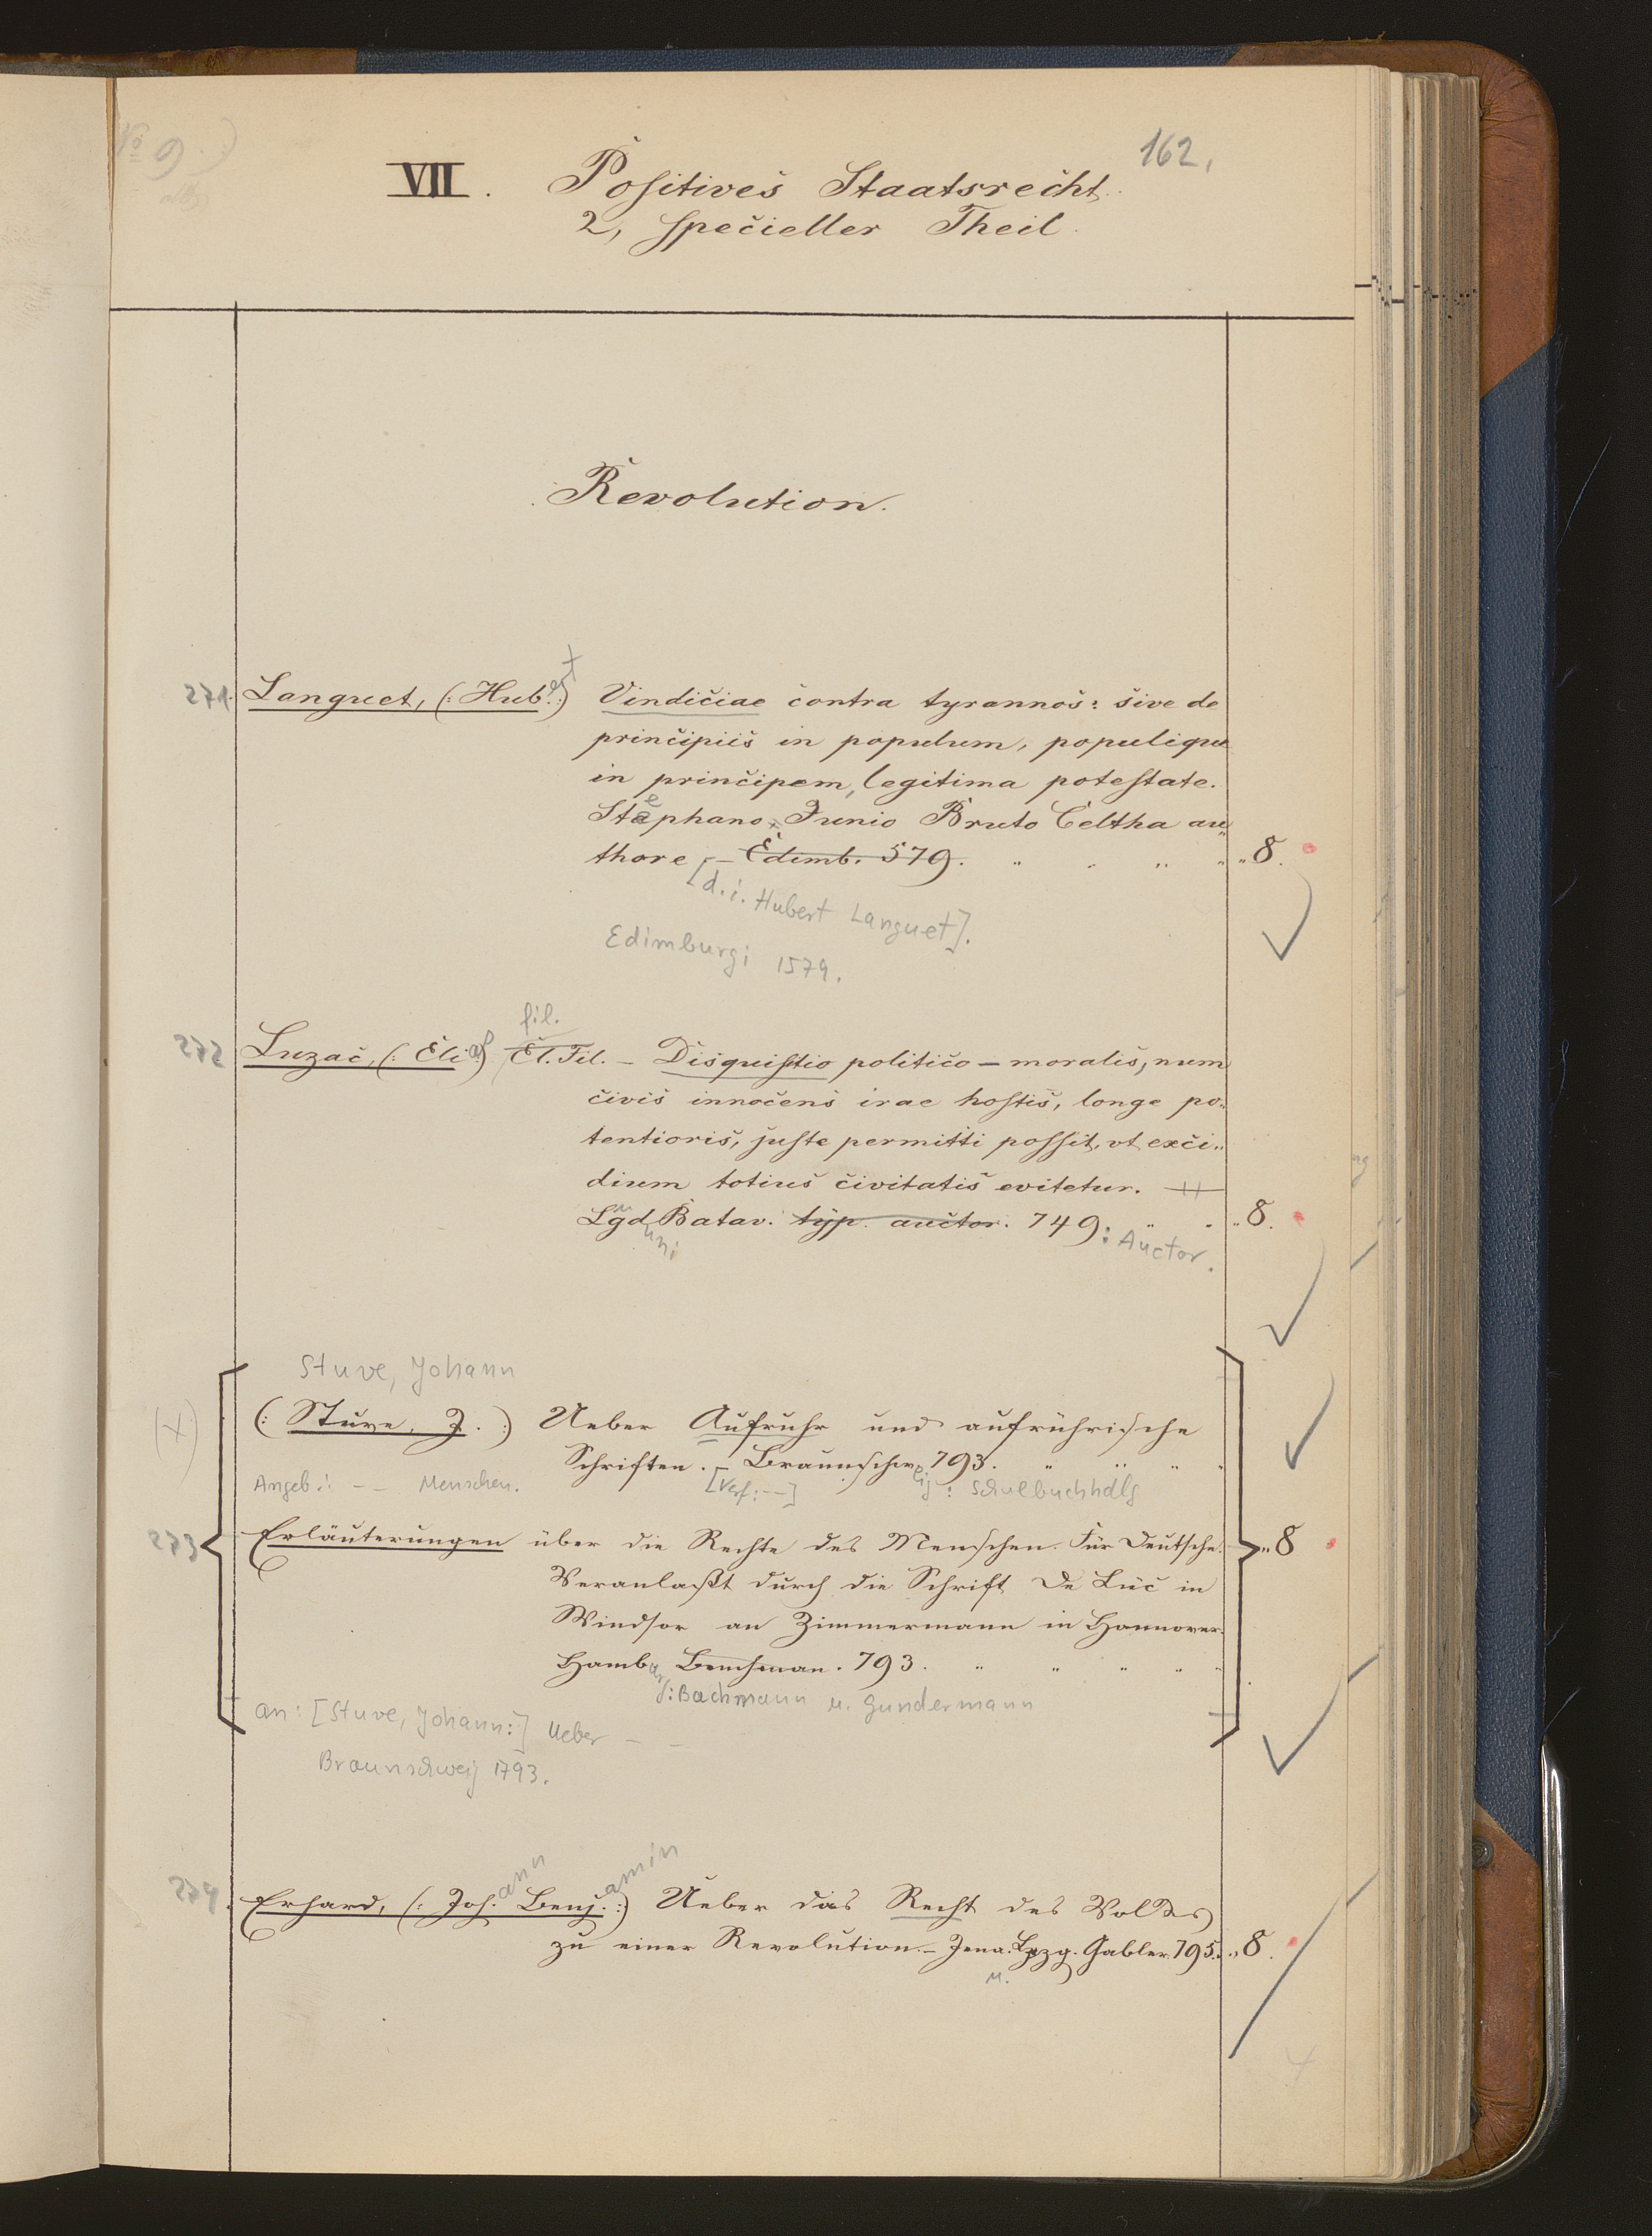 No 9.)
162.
VII. Positives Staatsrecht.
2, specieller Theil.
Revolution.
271. Languet, (: Hubert :) Vindiciae contra tyrannos: sive de
principiis in populum, populique
in principem, legitima potestate.
Stephano Junio Bruto Celtha au„
thore, – Edimb. 579. „ „ „ „ „ 8.
[d.i. Hubert Languet].
Edimburgi 1579.
fil.
272 Luzac, (: Elias) El. Fil. – Disquisitio politico – moralis, num
civis innocens irae hostis, longe po„
tentioris, juste permitti possit, vt exci„
dium totius civitatis evitetur. –
Lugd Batav. typ. auctor. 749. „ „ „ 8.
uni : Auctor.
Stuve, Johann
(X) (: Stuve, J. :) Ueber Aufruhr und aufrührische
Schriften. – Braunschw. 793. „ „ „ „
Angeb.: – – Menschen. [Verf: – –] eig : Schulbuchhdlg
273 Erläuterungen über die Rechte des Menschen. Für Deutsche. „ 8
Veranlaßt durch die Schrift De Luc in
Windsor an Zimmermann in Hannover.
Hamb. 793. „ „ „ „ „
: Bachmann u. Gundermann
an: [Stuve, Johann:] Ueber – –
Braunschweig 1793.
274. Erhard, (: Johann Benjamin :) Ueber das Recht des Volkes
zu einer Revolution. – Jena. Lpzg. Gabler. 795. „ 8.
u.
4